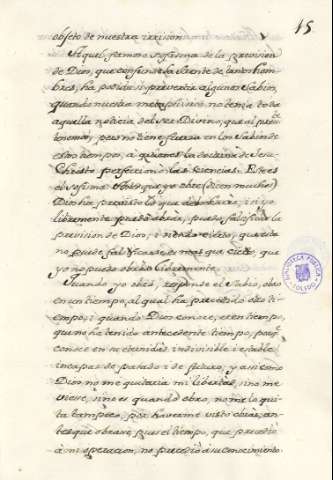 15
objeto de nuestra irrision.
Aquel famoso Sofisma de la prevision
de Dios, que confunde la frente de tantos hom
bres, ha podido pervertir algunos Sabios,
quando nuestra metaphisica no tenia toda
aquella noticia del Ser Divino, que al presen
tenemos; pero no tiene fuerza en los Sabios de
estos tiempos, á quienes la doctrina de Jesu-
Christo perfeccionó las ciencias. Este es
el Sofisma. Antes que yo obre (dicen muchos)
Dios ha previsto lo que debo hacer, i si yo
libremente puedo obrar, puedo falsificar la
prevision de Dios; i siendo cierto, que esta
no puede falsificarse es mas que cierto, que
yo no puedo obrar libremente.
Quando yo obro, responde el Sabio, obro
en un tiempo, al qual ha precedido otro ti-
empo; i quando Dios conoce, es en tiempo,
que no ha tenido antecedente tiempo, porq.
conoce en su eternidad indivisible i estable
incapaz de pasado i de futuro, y asi como
Dios no me quitaria mi libertad, si no me
viese, sino es quando obro, no me la qui
ta tampoco, por haverme visto obrar, an-
tes que obrare, pues el tiempo, que precedio
á mi operacion, no precedió á su conocimiento.
BIBLIOTECA PUBLICA
TOLEDO